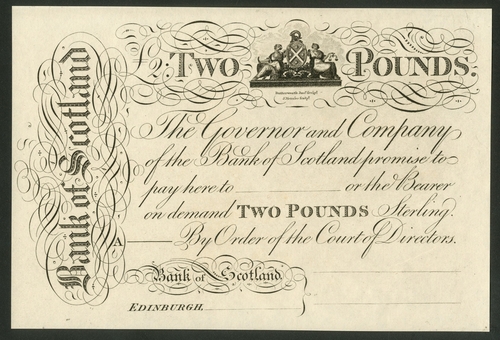 Bank of Scotland
£2: TWO POUNDS.
The Governor and Company
of the Bank of Scotland promise to
pay here to or the Bearer
on demand TWO POUNDS Sterling.
A By Order of the Court of Directors.
Bank of Scotland
EDINBURGH,